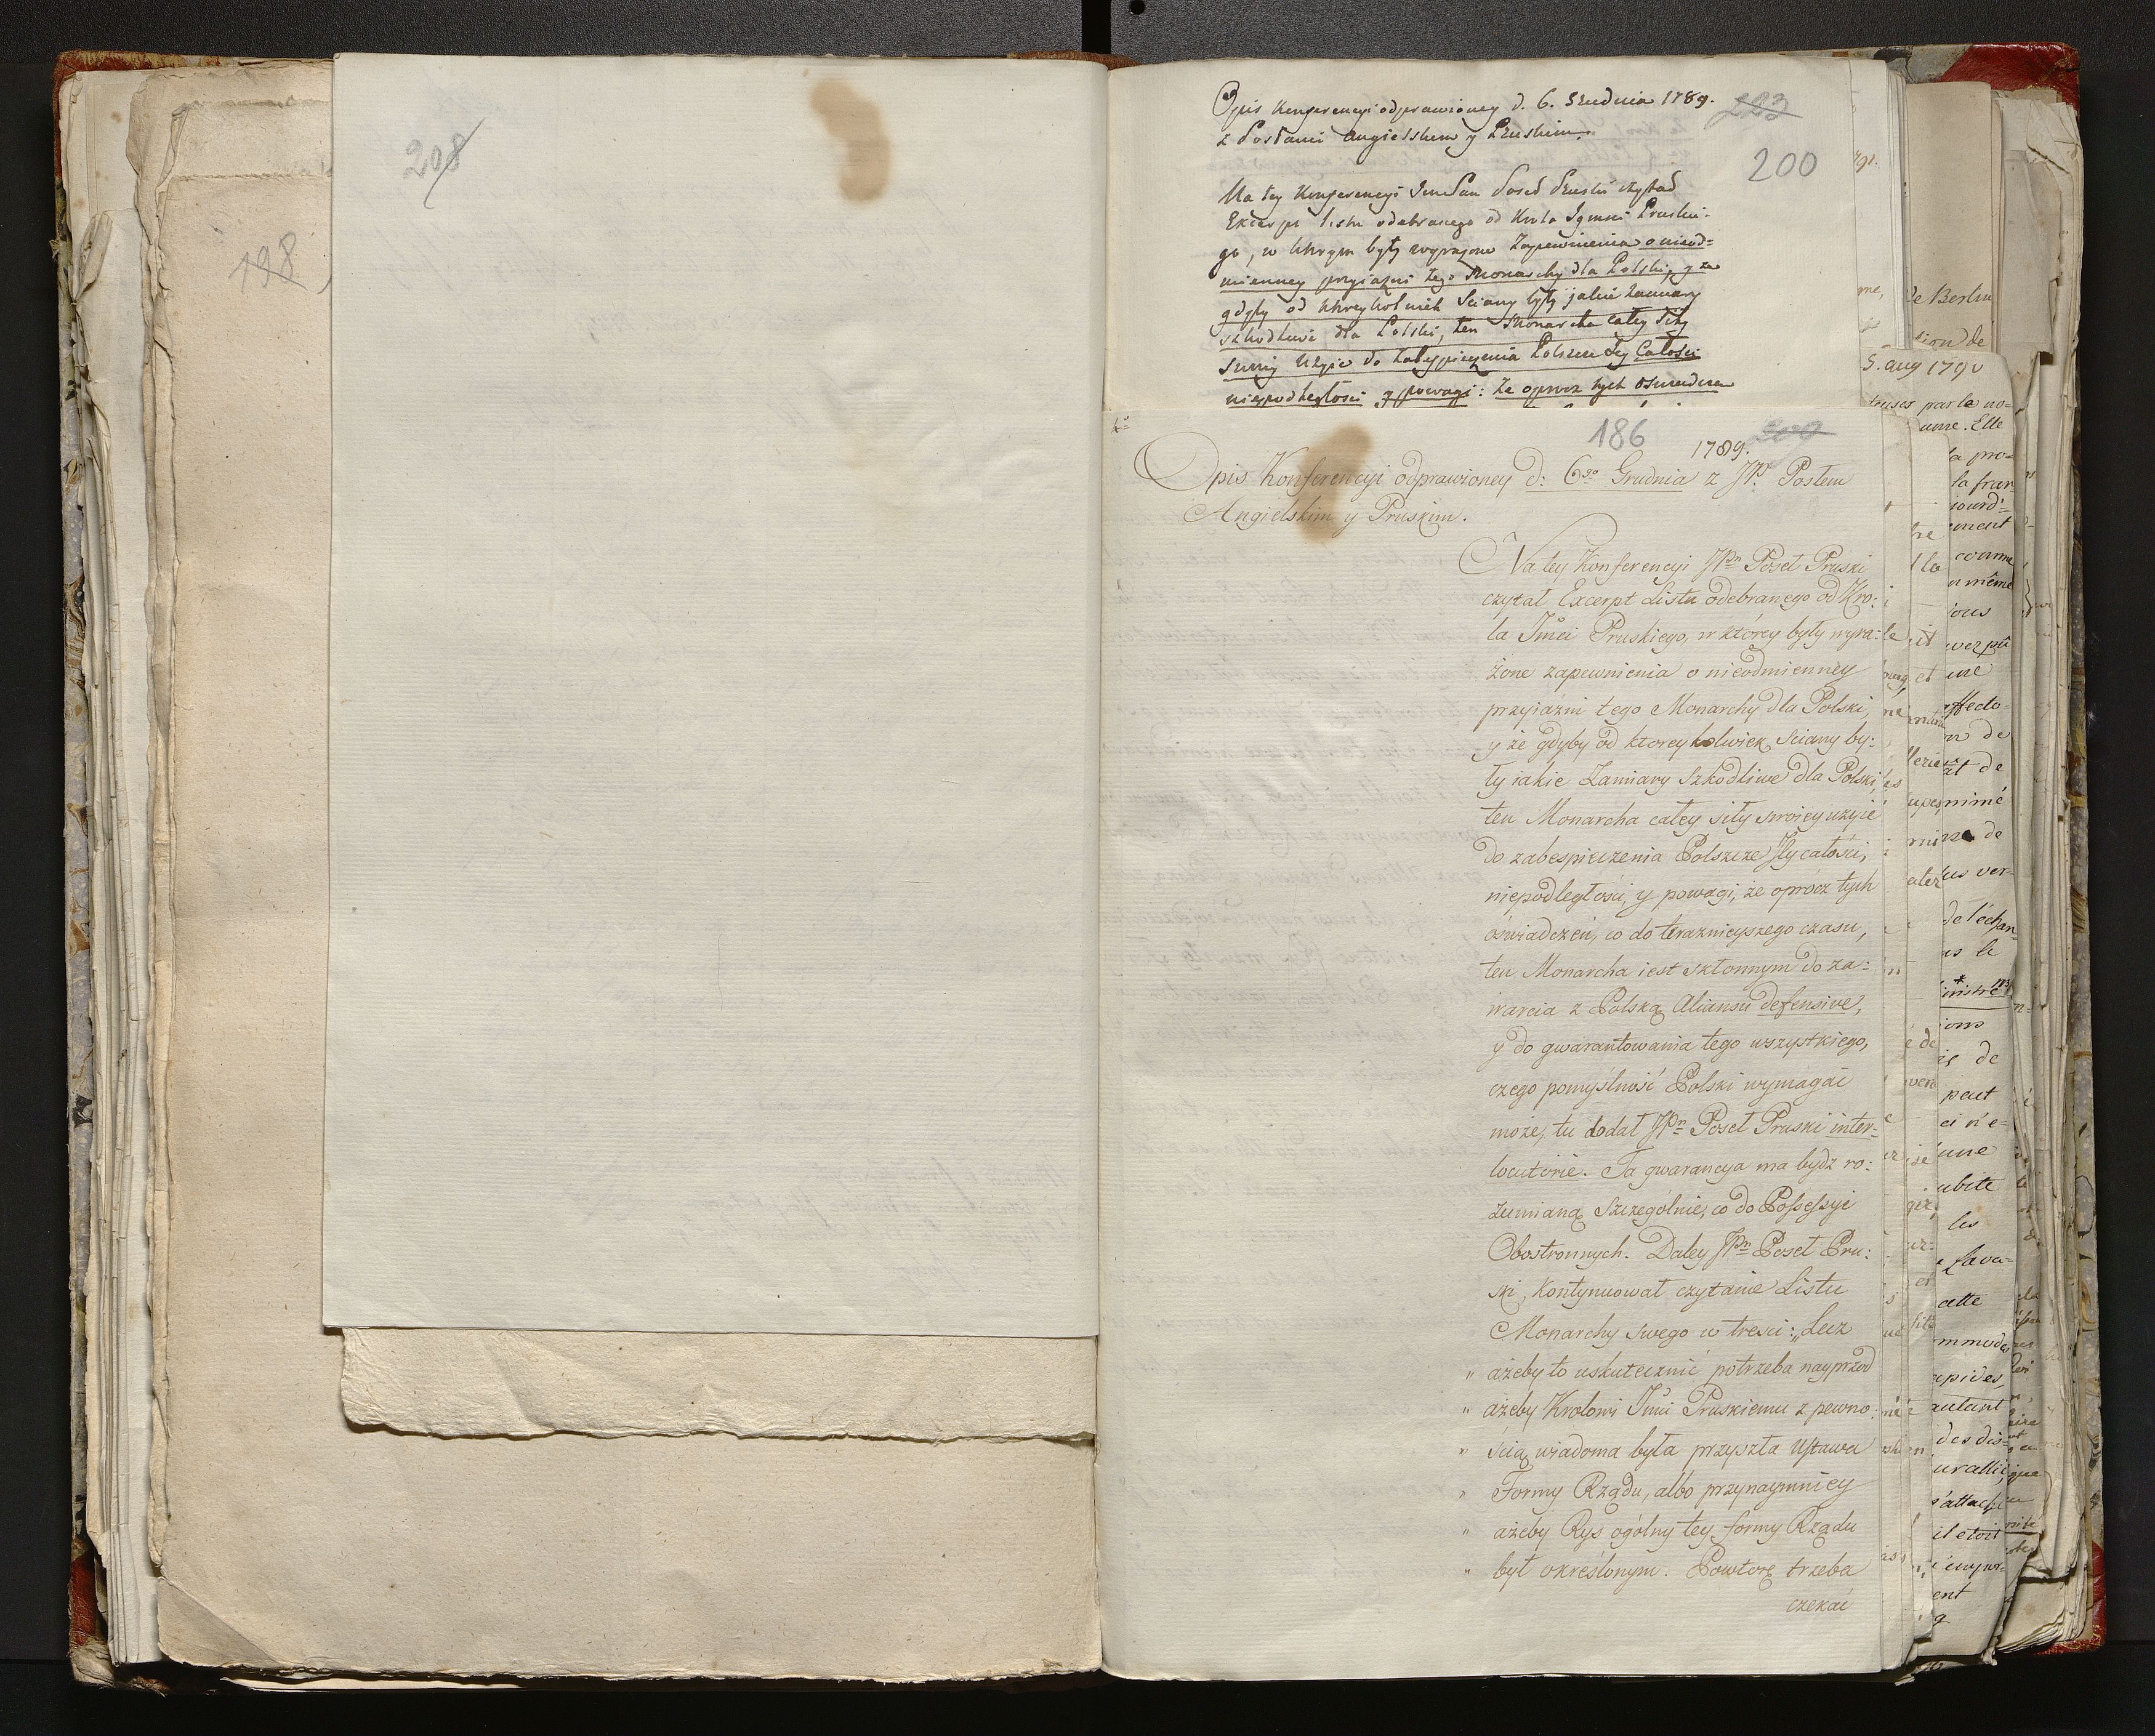 208
198
Opis Konferencyi odprawioney d. 6. Grudnia 1789.
z Posłami Angielskim y Pruskim.
223
200
Na tey Konferencyi Jmć Pan Poseł Pruski czytał
Excerpt listu odebranego od Krola Jgmci Pruskie-
go, w ktorym były wyrażone Zapewnienia o nieod=
mienney przyiazni tego Monarchy dla Polski, y że
gdyby od ktoreykolwiek sciany były jakie zamiary
szkodliwe dla Polski, ten Monarcha całey siły
swoiey użyie do zabespieczenia Polszcze Jey Całosci
niepodległosci y powagi: że oprocz tych oswiadczen
186
209
1789.
Opis Konferencyi odprawioney d: 6go Grudnia z JP. Posłem
Angielskim y Pruskim.
Na tey Konferencyi JPn Poseł Pruski
czytał Excerpt Listu odebranego od Kro:
la Jmci Pruskiego, w ktorey były wyra:
żone zapewnienia o nieodmienney
przyiaźni tego Monarchy dla Polski,
y że gdyby od ktoreykolwiek sciany by:
ły iakie Zamiary szkodliwe dla Polski,
ten Monarcha całey siły swoiey użyie
do zabespieczenia Polszcze Jey całości,
niepodległości, y powagi, że oprócz tych
oświadczeń, co do teraznieyszego czasu,
ten Monarcha iest skłonnym do za:
warcia z Polską Aliansu defensive,
y do gwarantowania tego wszystkiego,
czego pomyślność Polski wymagać
może, tu dodał JPn Poseł Pruski inter=
locutorie. Ta gwarancya ma bydź ro:
zumianą szczególnie, co do Possessyi
Obostronnych. Daley JPn Poseł Pru:
ski, kontynuował czytanie Listu
Monarchy swego w tresci: „Lecz
„ ażeby to uskutecznić potrzeba nayprzod
„ ażeby Krolowi Jmci Pruskiemu z pewno:
„ ścią wiadoma była przyszła Ustawa
„ Formy Rządu, albo przynaymniey
„ ażeby Rys ogólny tey formy Rządu
„ był określonym. Powtorę trzeba
czekać
de Berlin
5. aug 1790